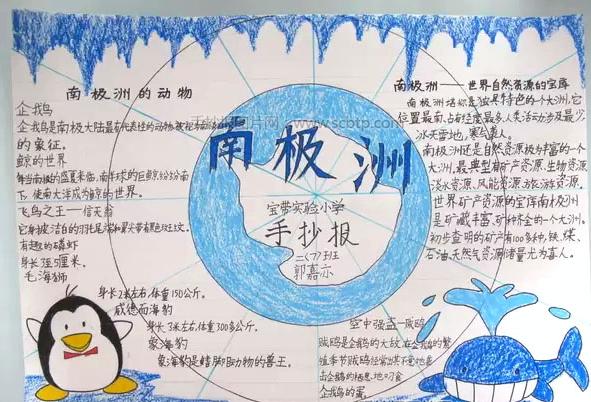 南极洲的动物
企鹅
企鹅是南极大陆最有代表性的动物,被视为
的象征。
鲸的世界
每当南极的盛夏来临,南半球的巨鲸纷纷南
下,使南大洋成为鲸的世界。
飞鸟之王——信天翁
它身披洁白的羽毛,尾端和翼尖带有黑色斑纹。
有趣的磷虾
身长 厘米。
毛海狮
身长2米左右,体重150公斤。
威德尔海豹
身长3米左右,体重300多公斤。
象海豹
象海豹是鳍脚动物的兽王。
南极洲
宝带实验小学
手抄报
二(7)班
郭嘉示
南极洲——世界自然资源的宝库
南极洲堪称是独具特色的一个大洲,它
位置最南,占有经度最多,人类活动涉及最少
冰天雪地,寒气袭人。
南极洲还是自然资源极为丰富的一个
大洲,最典型有矿产资源、生物资源
淡水资源、风能资源、旅游资源。
世界矿产资源的宝库南极洲
是矿藏丰富,矿种齐全的一个大洲。
初步查明的矿产有100多种,铁、煤、
石油、天然气资源储量尤为喜人。
空中强盗—贼鸥
贼鸥是企鹅的大敌,在企鹅的繁
殖季节,贼鸥经常出其不意地袭
击企鹅的栖息地,叼食
企鹅的蛋。
手抄报图片网-www.scbtp.com